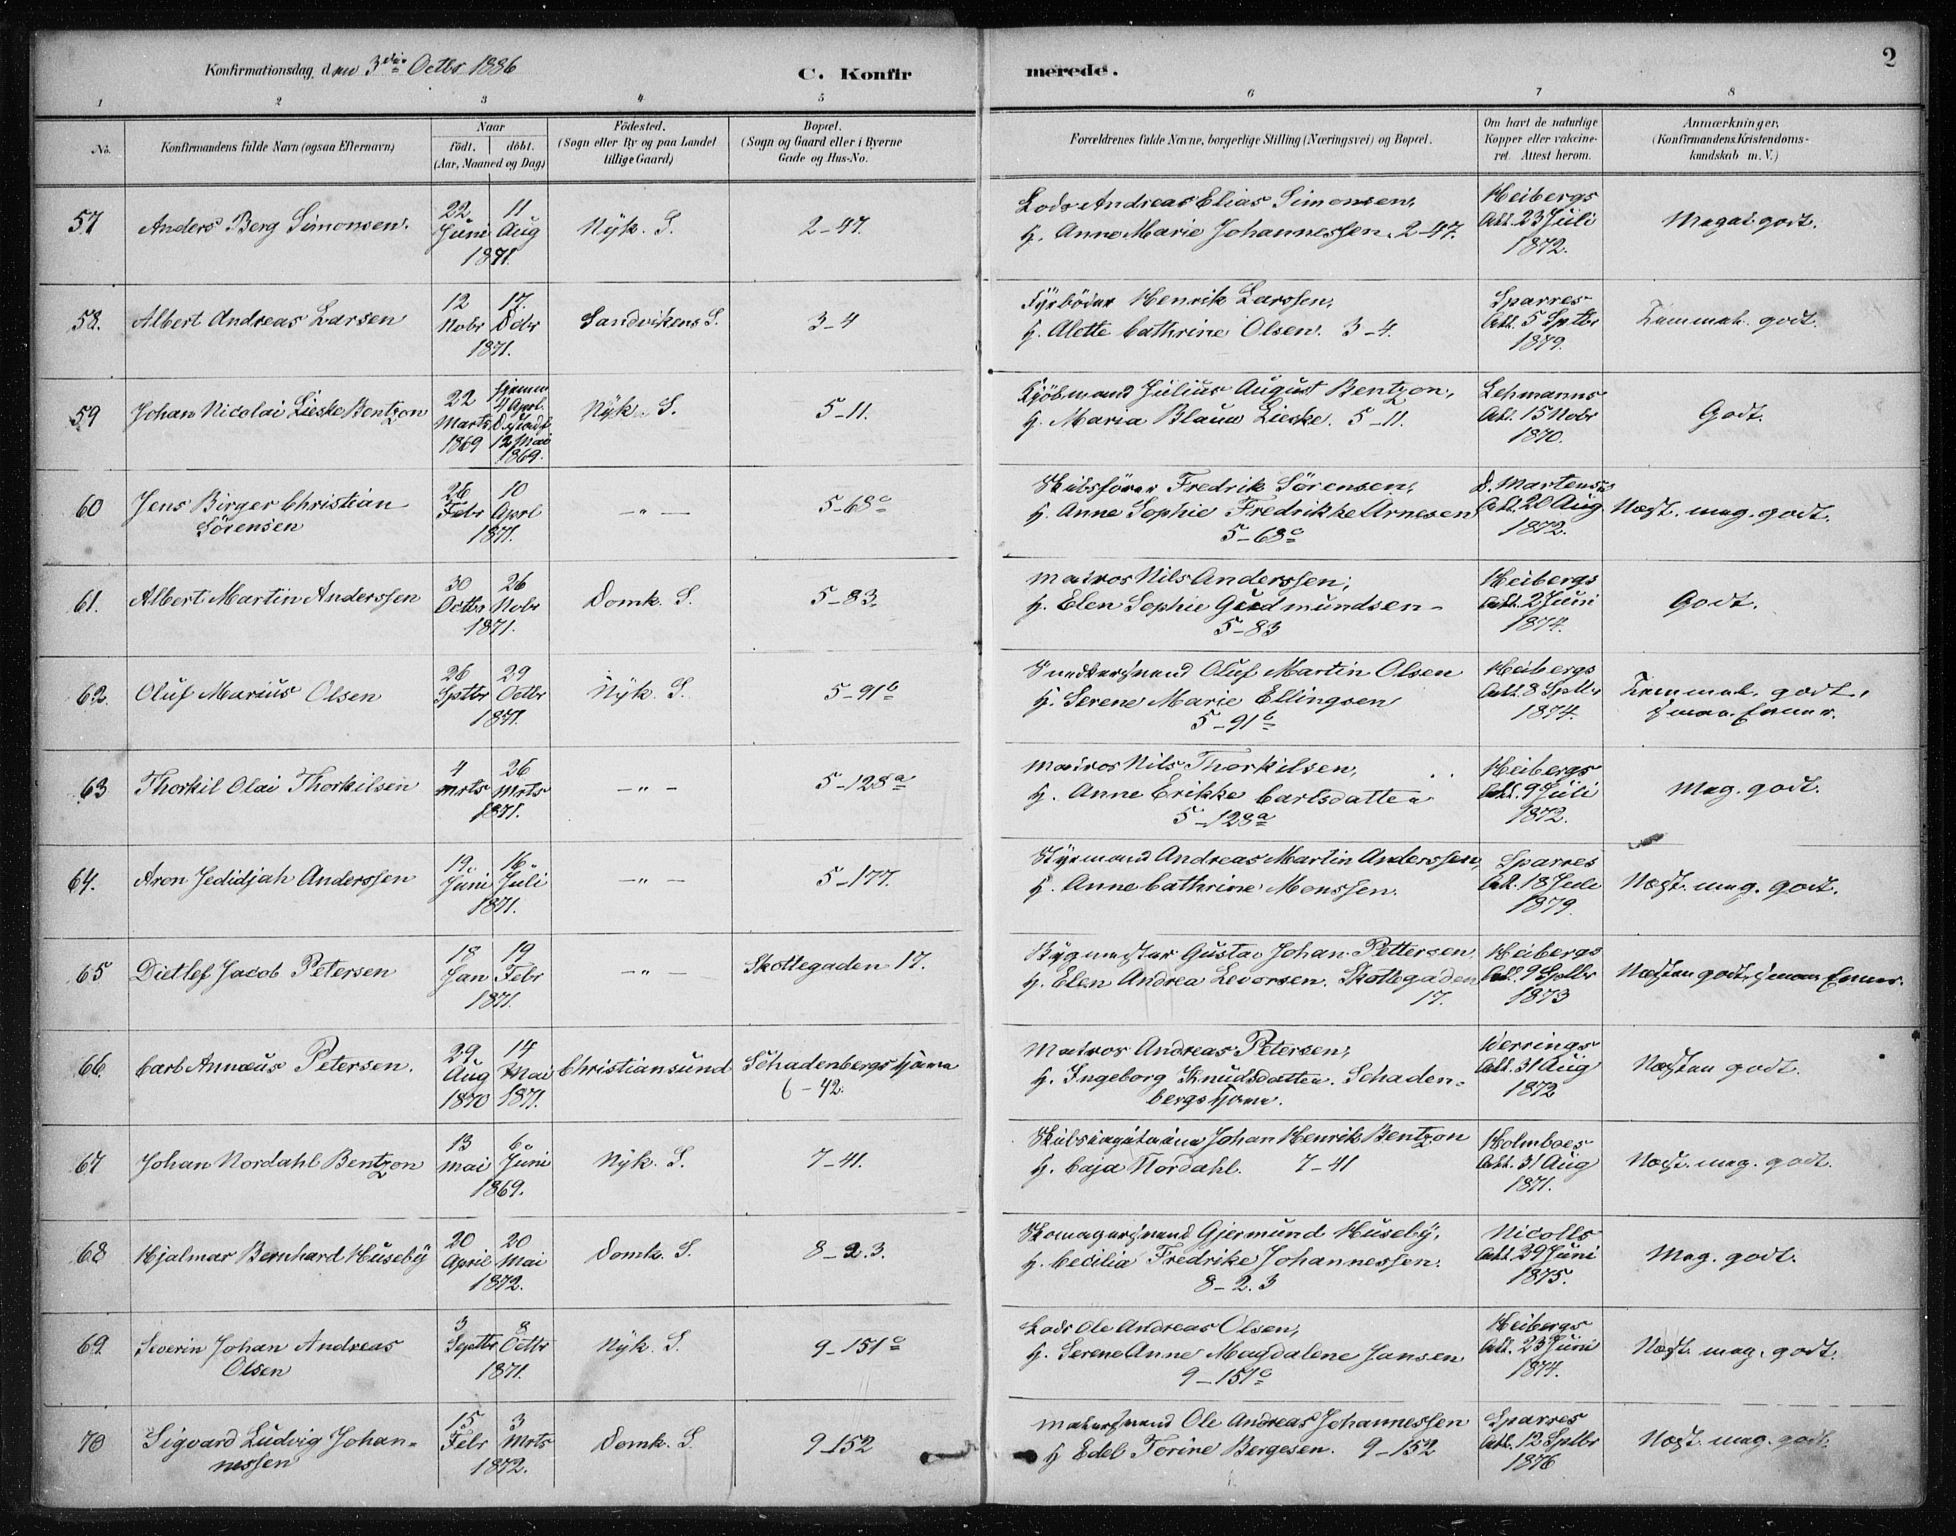 Konfirmationsdag den 3die Octbr 1886
C. Konfir
merede.
2
1 2 3 4 5 6 7 8
No.
Konfirmandens fulde Navn (ogsaa Efternavn)
Naar
født. døbt.
(Aar, Maaned og Dag)
Fødested.
(Sogn eller By og paa Landet
tillige Gaard)
Bopæl.
(Sogn og Gaard eller i Byerne
Gade og Hus-No.
Forældrenes fulde Navne, borgerlige Stilling (Næringsvei) og Bopæl.
Om havt de naturlige
Kopper eller vakcine-
ret. Attest herom.
Anmærkninger,
(Konfirmandens Kristendoms-
kundskab m. V.)
57. Anders Berg Simonsen.
22 Juni 11 Aug
1871.
Nyk. S.
2-47.
Lods Andreas Elias Simonsen,
H. Anne Marie Johannessen. 2-47.
Heibergs
Att. 23 Juli
1872.
Meget godt.
58. Albert Andreas Larsen
12 Nobr 17. Dcbr
1871.
Sandvikens S.
3-4
Fyrbøder Henrik Larssen,
H. Alette Cathrine Olsen. 3-4.
Sparres
Att. 5 Sptbr
1879.
Temmel. godt.
59 Johan Nicolai Lieske Bentzon
22 Marts 1869
hjemme
4 Aprl.
12 Mai
1869.
Nyk. S.
5-11.
Kjøbmand Julius August Bentzon,
H. Maria Blauw Lieske. 5-11.
Lehmanns
Att. 15 Nobr
1870.
Godt.
60 Jens Birger Christian
Sørensen
26 Febr 10 Aprl
1871.
— " —
5-68c
Skibsfører Fredrik Sørensen,
H. Anne Sophie Fredrikke Arnesen
5-68c
D. Martens
Att. 20 Aug
1872.
Næst. meg. godt.
61. Albert Martin Anderssen
30 Octbr 26 Nobr
1871.
Domk. S.
5-83.
Matros Nils Anderssen,
H. Elen Sophie Gudmundsen-
5-83
Heibergs
Att. 2 Juni
1874.
Godt.
62. Oluf Marius Olsen
26 Sptbr 29 Octbr
1871.
Nyk. S.
5-91b
Snedkersvend Oluf Martin Olsen
H. Serene Marie Ellingsen
5-91b
Heibergs
Att. 8 Sptbr
1874.
Temmel. godt,
smaa Evner.
63 Thorkil Olai Thorkilsen
4 Mrts 26 Mrts
1871.
— " —
5-128a
Matros Nils Thorkilsen,
H. Anne Erikke Carlsdatter
5-128a
Heibergs
Att. 9 Juli
1872.
Meg. godt.
64. Aron Jedidjah Anderssen
19 Juni 16 Juli
1871.
— " —
5-177.
Styrmand Andreas Martin Anderssen,
H. Anne Cathrine Monssen.
Sparres
Att. 18 Juli
1879.
Næst. meg. godt.
65 Dietlef Jacob Petersen
18 Jan 19 Febr
1871.
— " —
Skottegaden 17.
Bygmester Gustav Johan Pettersen
H. Elen Andrea Levorsen. Skottegaden
17.
Heibergs
Att. 9 Sptbr
1873
Næsten godt, smaa Evner.
66. Carl Annæus Petersen.
29 Aug 1870 14 Mai 1871.
Christiansund
Schadenbergs Hjem
6-42.
Matros Andreas Petersen,
H. Ingeborg Knudsdatter. Schaden-
bergs Hjem.
Werrings
Att. 31 Aug
1872
Næsten godt.
67 Johan Nordahl Bentzon
13 Mai 6 Juni
1869.
Nyk. S.
7-41.
Johan Henrik Bentzon
H. Caja Nordahl. 7-41
Holmboes
Att. 31 Aug
1871.
Næst. meg. godt.
68 Hjalmar Bernhard Huseby
20 April 20 Mai
1872.
Domk. S.
8-2.3.
Skomagersvend Gjermund Huseby,
H. Cecilia Fredrike Johannessen.
8-2.3
Nicolls
Att. 29 Juni
1875.
Meg. godt.
69. Severin Johan Andreas
Olsen
3 Septbr 8 Octbr
1871.
Nyk. S.
9-151c
Lods Ole Andreas Olsen,
H. Serene Anne Magdalene Jansen
9-151c
Heibergs
Att. 23 Juni
1874.
Næst. meg. godt.
70 Sigvard Ludvig Johan-
nessen
15 Febr 3 Mrts
1872.
Domk. S.
9-152
Malersvend Ole Andreas Johannessen
H Edel Torine Bergesen. 9-152
Sparres
Att. 12 Sptbr
1876
Næst. meg. godt.